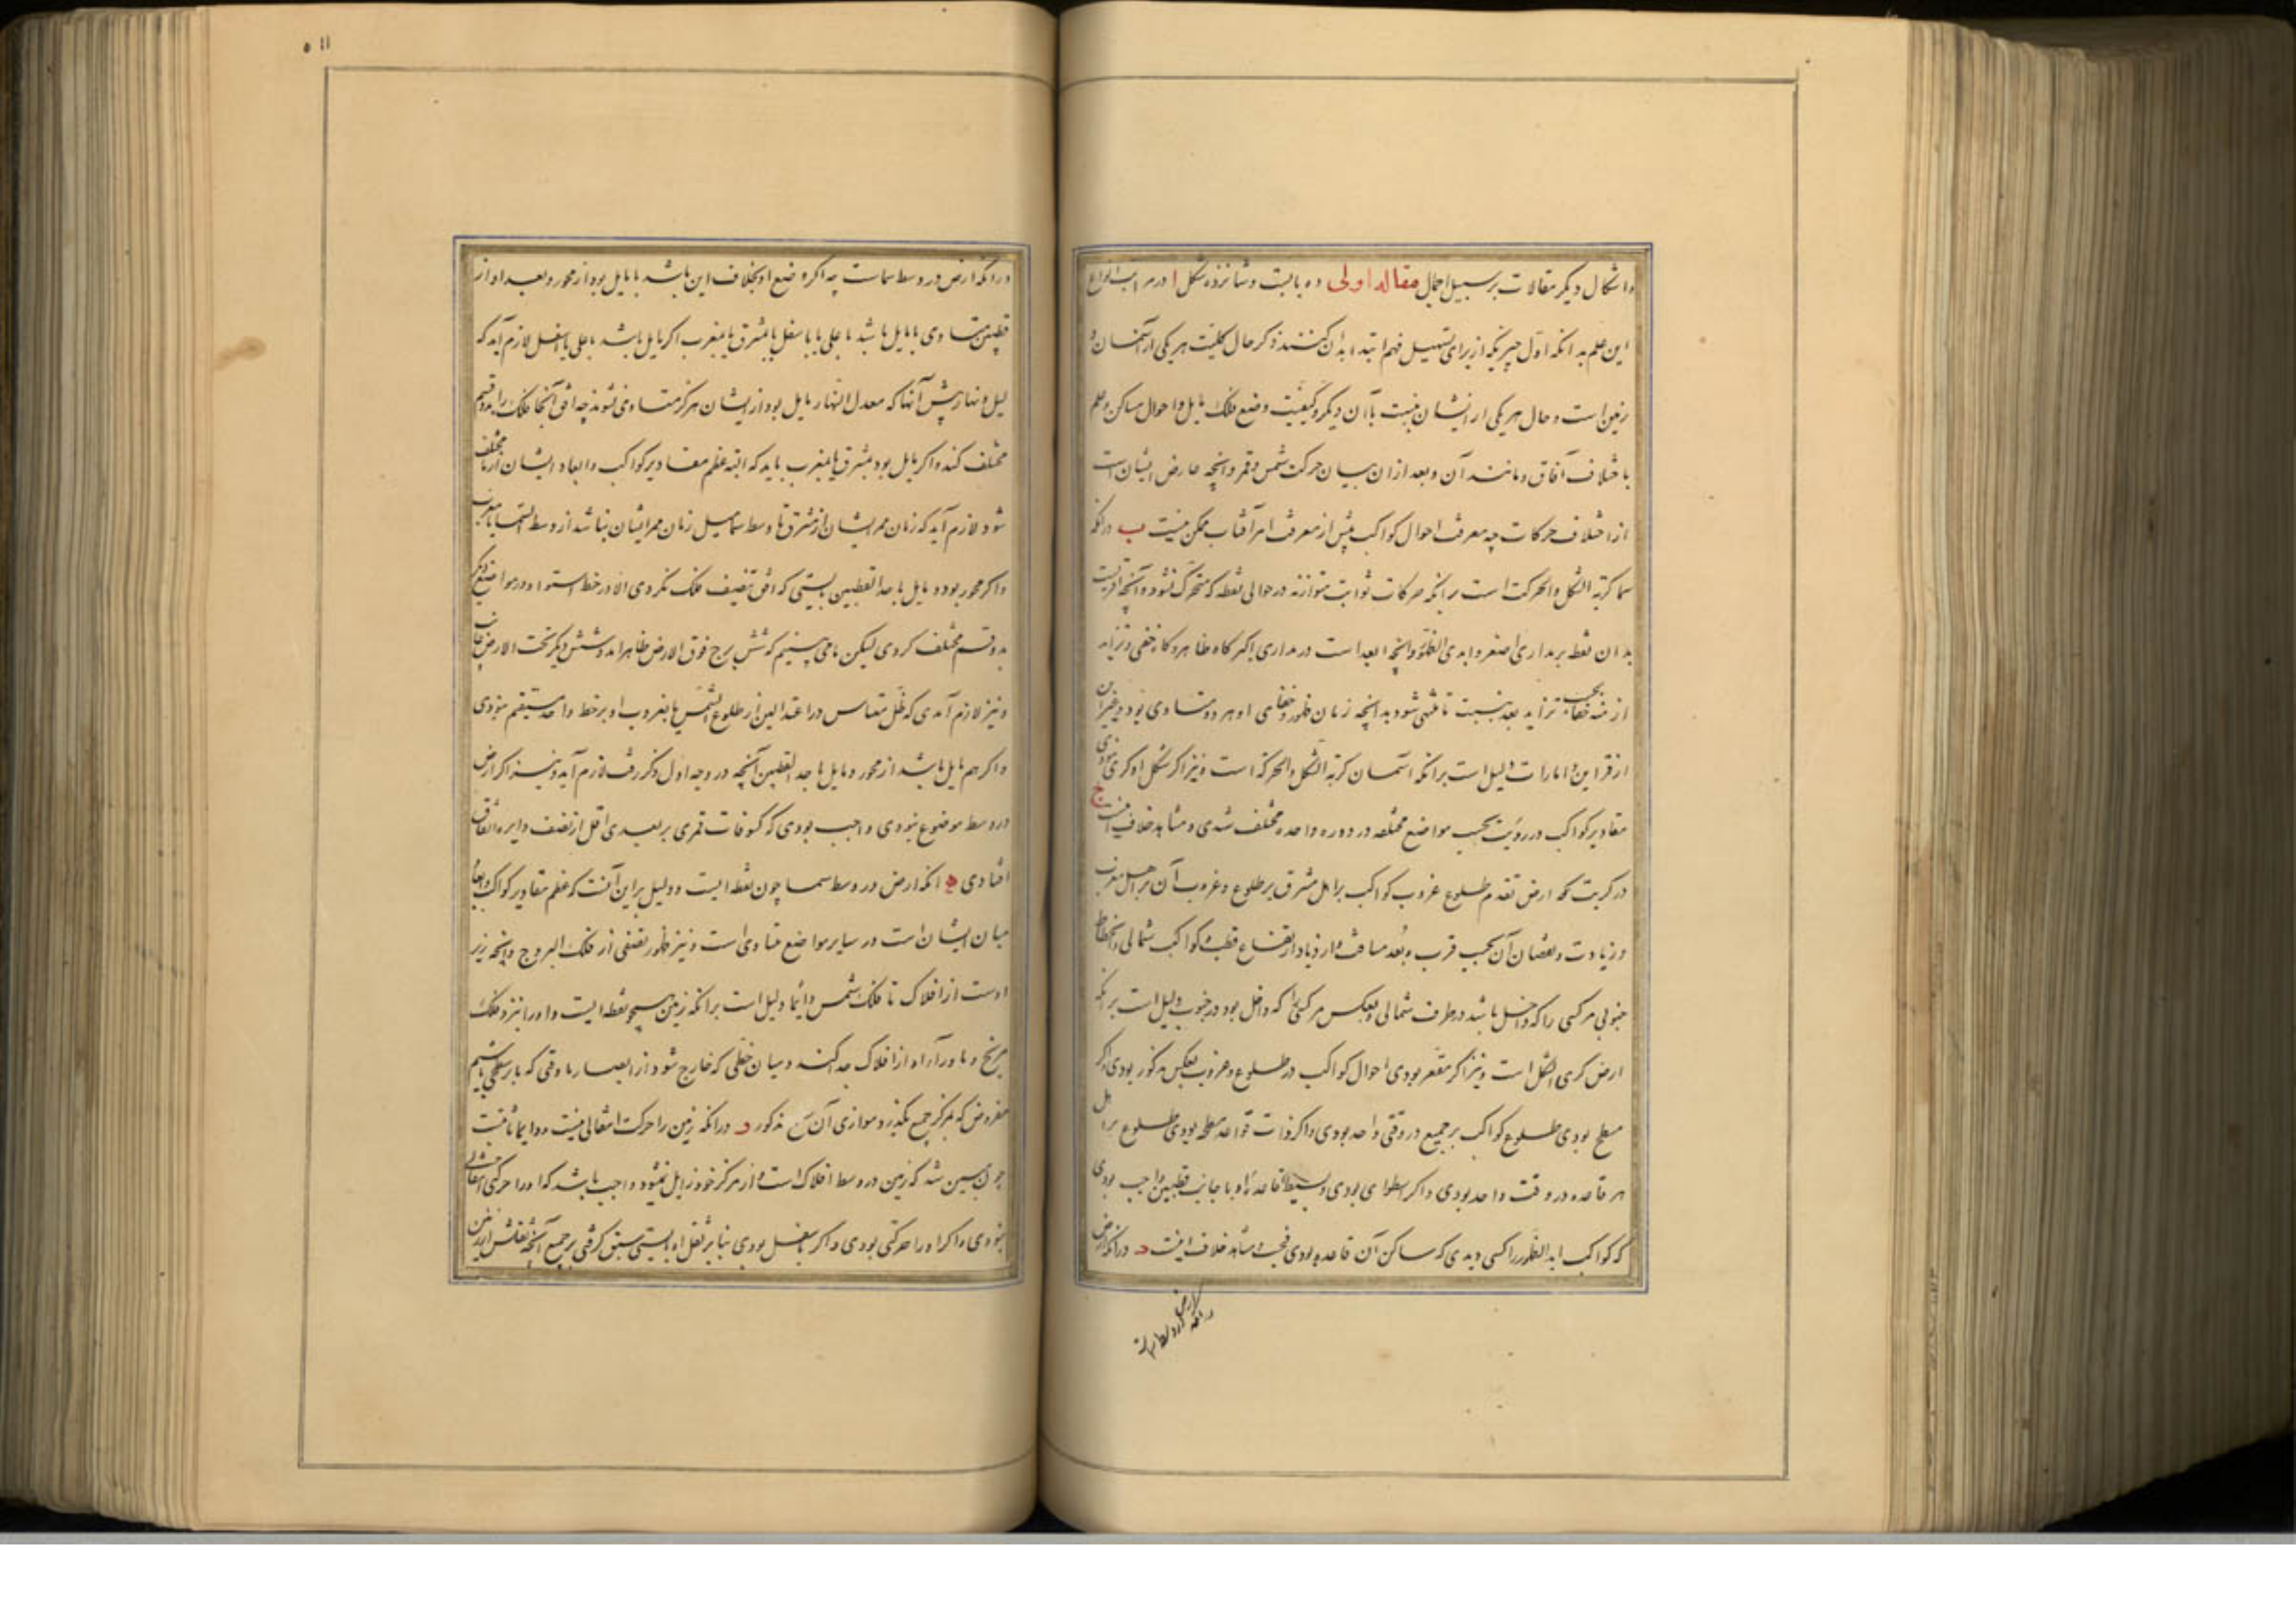 و اشکال دیگر مقالات بر سبیل اجمال مقاله اولی ده بابست و شانزده شکل ا در مراتب انواع
این علم بدانکه اول چیزیکه از برای تسهیل فهم ابتدا بدان کنند ذکر حال کلیت هر یکی از آسمان و
زمین است و حال هر یکی از ایشان بنسبت با آن دیگر و کیفیت وضع فلک مایل و احوال مساکن و علم
باختلاف آفاق و مانند آن و بعد از ان بیان حرکت شمس و قمر و آنچه عارض ایشان است
از اختلاف حرکات چه معرفت احوال کواکب پیش از معرفت امر آفتاب ممکن نیست ب در انکه
سما کریّة الشکل والحرکت است بر انکه حرکات ثوابت متوازنه در حوالی نقطه که متحرک نشود و آنچه اقربست
بدان نقطه بر مداری اصغر و ابدی الظهور و آنچه ابعد است در مداری اکبر کاه ظاهر و کاه خفی و تزاید
ازمنه خفا بحسب تزاید بعد بنسبت تا منتهی شود بدانچه زمان ظهور و خفای او هر دو متساوی بود و غیر این
از قراین و امارات دلیل است بر انکه آسمان کریّة الشکل والحرکة است و نیز اگر شکل او کری نبودی
مقادیر کواکب در رؤیت بحسب مواضع مختلفه در دوره واحده مختلف شدی و مشاهد خلاف اینست ج
در کریت کره ارض تقدم طلوع و غروب کواکب بر اهل مشرق بر طلوع و غروب آن بر اهل مغرب
و زیادت و نقصان آن بحسب قرب و بعد مسافت و ازدیاد ارتفاع قطب و کواکب شمالی و انحطاط
جنوبی مر کسی را که داخل باشد در طرف شمالی و بعکس مر کسی را که داخل بود در جنوب دلیل است بر انکه
ارض کری الشکل است و نیز اگر مقعر بودی احوال کواکب در طلوع و غروب بعکس مذکور بودی و اگر
مسطح بودی طلوع کواکب بر جمیع در وقتی واحد بودی و اگر ذات قواعد مسطحه بودی طلوع بر اهل
هر قاعده در وقت واحد بودی و اگر اسطوانی بودی و بسیط قاعدتاه با جانب قطبین واجب بودی
که کواکب ابد الظهور را کسی دیدی که ساکن آن قاعده بودی فحسب و مشاهد خلاف اینست د در انکه ارض
در انکه ارض در وسط سماست
۵۱۱
در انکه ارض در وسط سماست چه اگر وضع او بخلاف این باشد یا مایل بود از محور و بعد او از
قطبین متساوی یا مایل باشد باعلی یا باسفل یا بمشرق یا بمغرب اگر مایل باشد باعلی یا اسفل لازم آید که
لیل و نهار پیش آنها که معدل النهار مایل بود از ایشان هرگز متساوی نشوند چه افق آنجا فلک را بدو قسم
مختلف کند و اگر مایل بود بمشرق یا بمغرب باید که البته عظم مقادیر کواکب و ابعاد ایشان از ما مختلف
شود لازم آید که زمان ممر ایشان از مشرق تا وسط سما مثل زمان ممر ایشان نباشد از وسط السما تا مغرب
و اگر بر محور بود و مایل باحد القطبین بایستی که افق تنصیف فلک نکردی الا در خط استوا و در مواضع دیگر
بدو قسم مختلف کردی لیکن ما می بینیم که شش برج فوق الارض ظاهراند و شش دیگر تحت الارض غایب
و نیز لازم آمدی که ظل مقیاس در اعتدالین از طلوع الشمس تا بغروب او بر خط واحد مستقیم نبودی
و اگر هم مایل باشد از محور و مایل باحد القطبین آنچه در وجه اول ذکر رفت لازم آید و نیز اگر ارض
در وسط موضوع نبودی واجب بودی که کسوفات قمری بر بعدی اقل از نصف دایره اتفاق
افتادی ه انکه ارض در وسط سما چون نقطه ایست و دلیل بر این آنست که عظم مقادیر کواکب و ابعاد
میان ایشان است در سایر مواضع متساوی است و نیز ظهور نصفی از فلک البروج و آنچه زیر
اوست از افلاک تا فلک شمس دائما دلیل است بر انکه زمین همچو نقطه ایست و او را نزد فلک
مریخ و ماورآء او از افلاک جد کنند و میان خطی که خارج شود از ابصار ما وقتی که بر سطحی باشیم
مفروض که بمرکز جمیع بگذرد و موازی آن سطح مذکور و در انکه زمین را حرکت انتقالی نیست و دایما ثابتست
چون مبین شد که زمین در وسط افلاک است و از مرکز خود زایل نمیشود واجب باشد که او را حرکتی انتقالی
نبودی و اگر او را حرکتی بودی و اگر باسفل بودی بنا بر ثقل او بایستی سبق گرفتی بر جمیع آنچه ثقلش از زمین